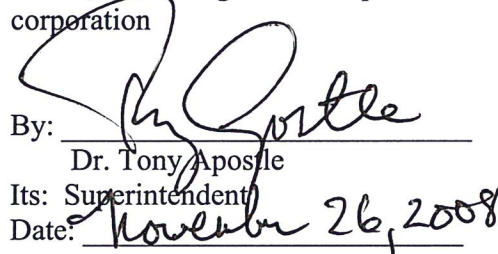 corporation
By: Tony Apostle
Dr. Tony Apostle
Its: Superintendent
Date: November 26, 2008